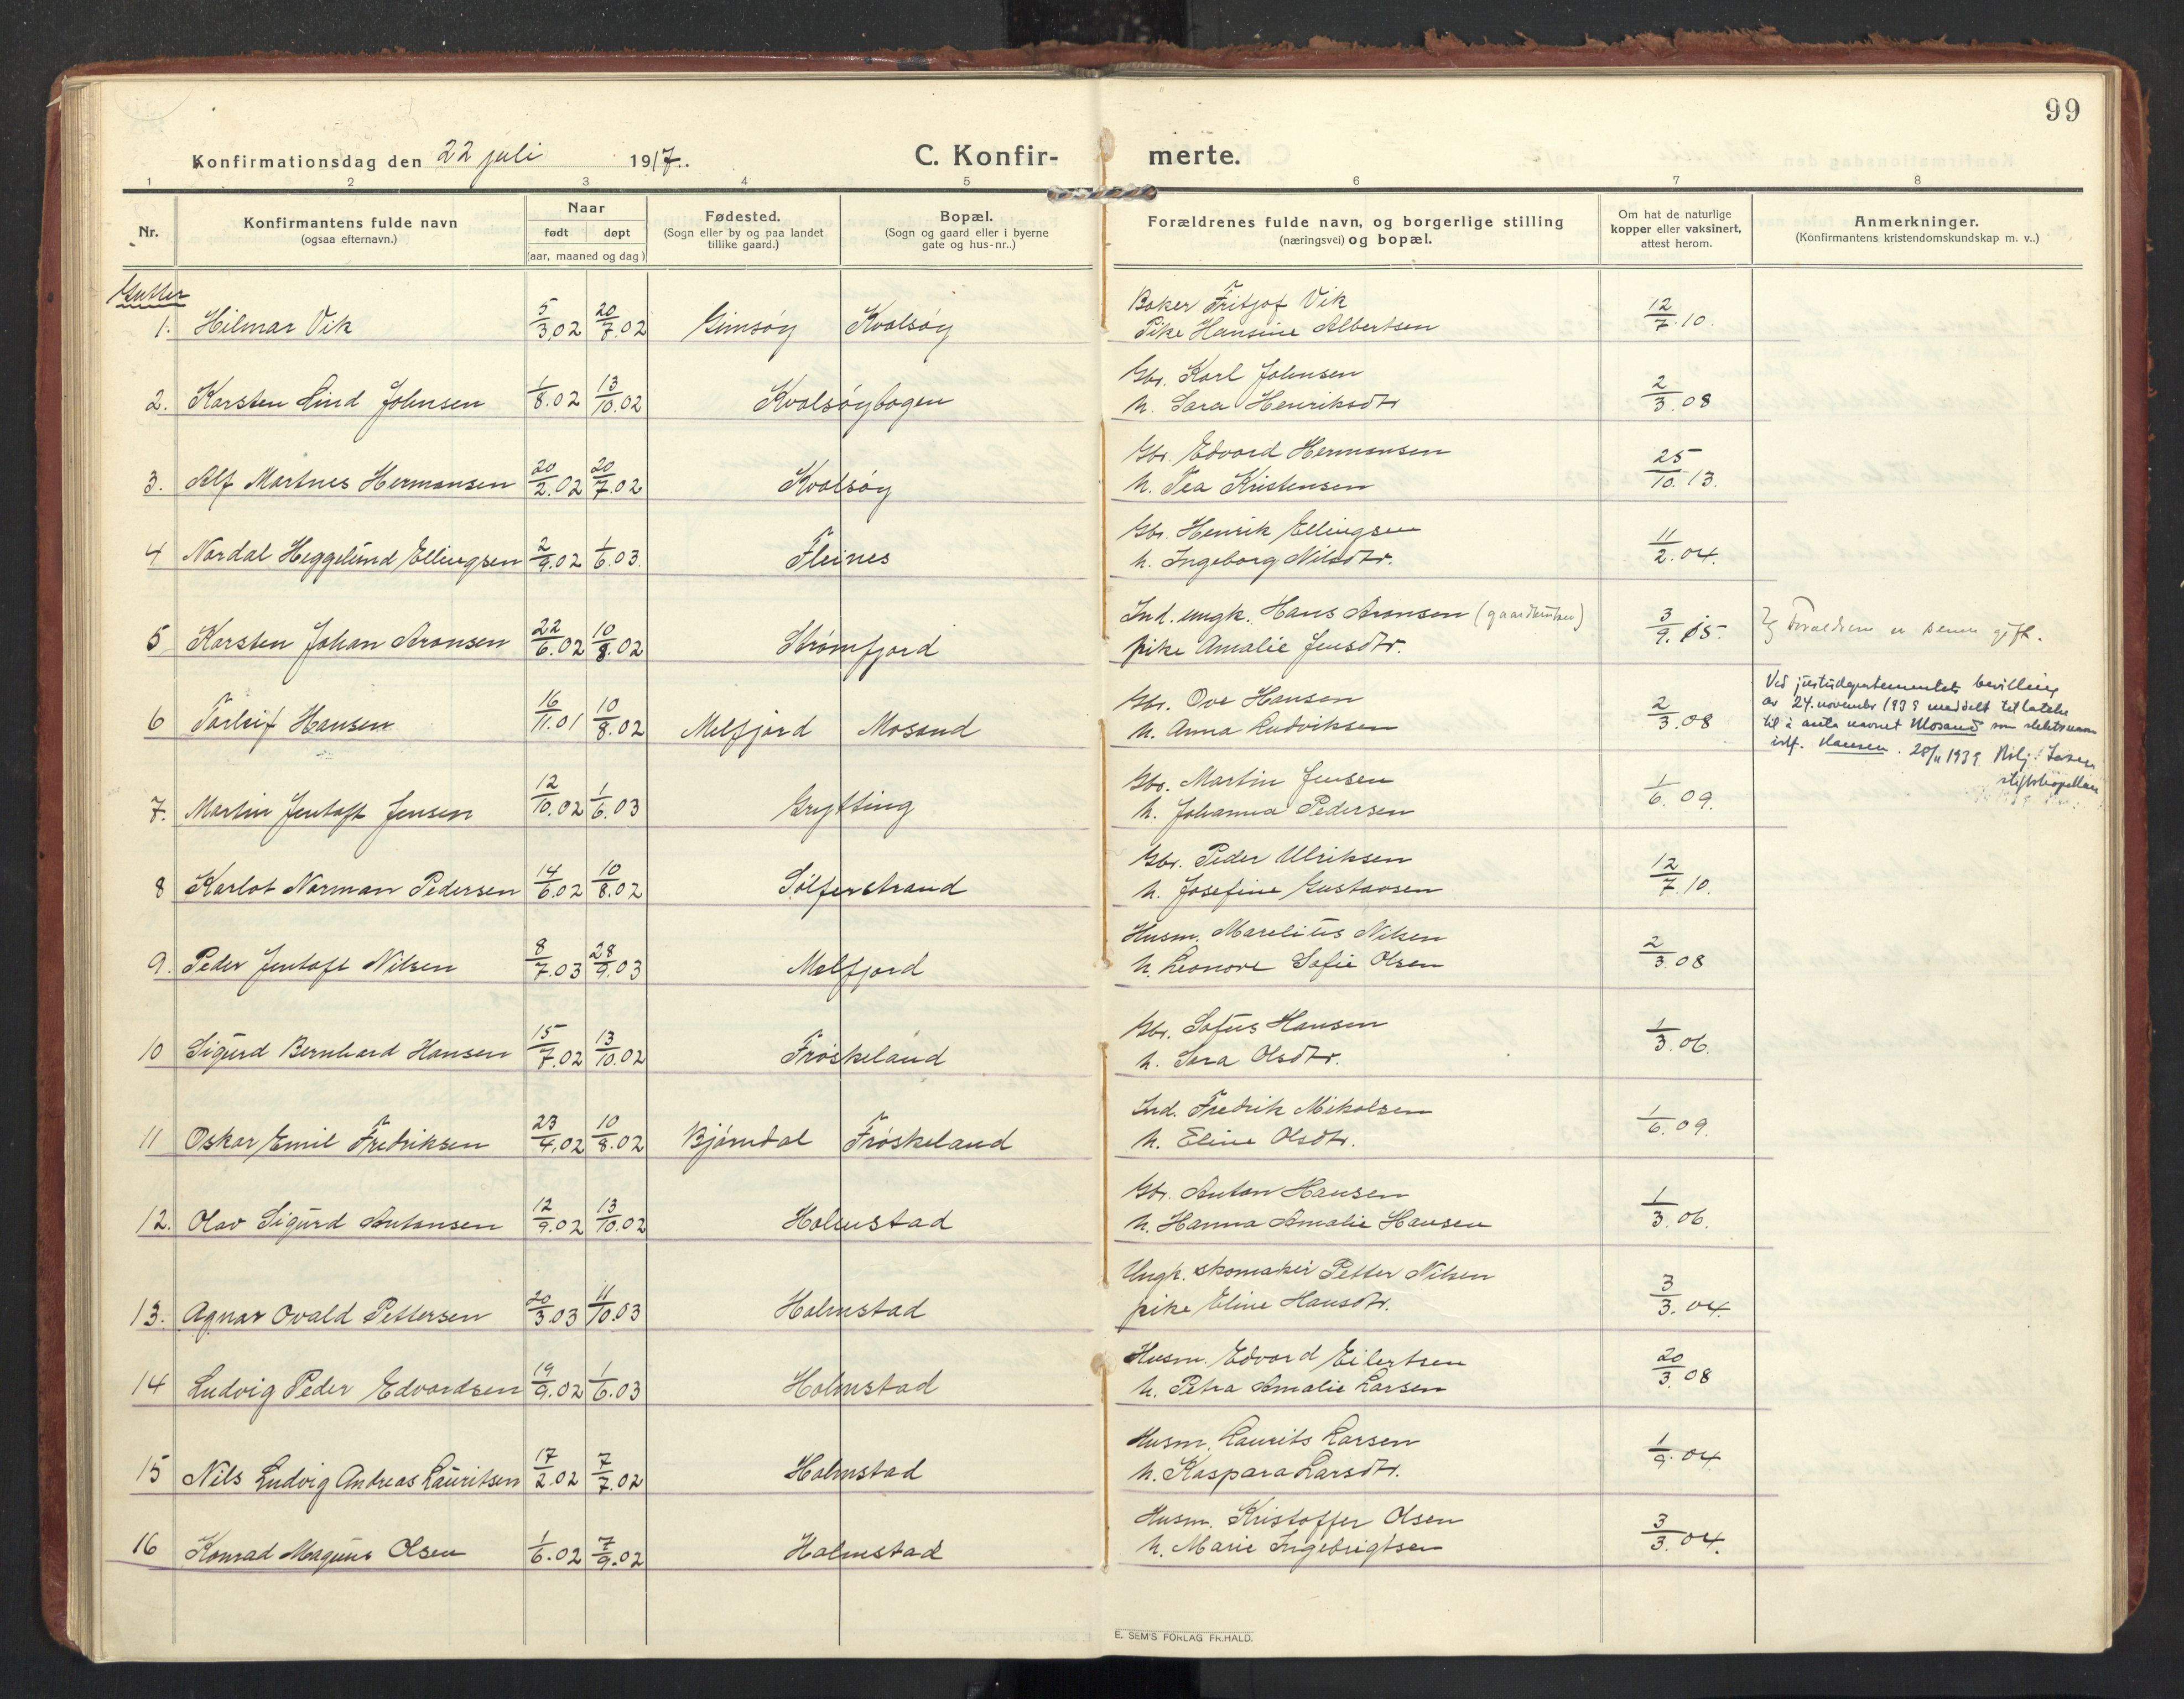 99
Konfirmationsdag den 22 juli 1917.
C. Konfir- merte.
1 2 3 4 5 6 7 8
Nr.
Konfirmantens fulde navn
(ogsaa efternavn.)
Naar
født døpt
(aar, maaned og dag)
Fødested.
(Sogn eller by og paa landet
tillike gaard.)
Bopæl.
(Sogn og gaard eller i byerne
gate og hus-nr..)
Forældrenes fulde navn, og borgerlige stilling
(næringsvei) og bopæl.
Om hat de naturlige
kopper eller vaksinert,
attest herom.
Anmerkninger.
(Konfirmantens kristendomskundskap m. v..)
Gutter
Baker Fritjof Vik
1. Hilmar Vik 5/3.02 20/7.02 Gimsøy Kvalsøy Pike Hansine Albertsen 12/7.10.
Gbr. Karl Johnsen
2. Karsten Lind Johnsen 1/8.02 13/10.02 Kvalsøybogen h. Sara Henriksdtr 2/3.08
Gbr. Edvard Hermansen
3. Alf Martnes Hermansen 20/2.02 20/7.02 Kvalsøy h. Tea Kristensen 25/10.13.
Gbr. Henrik Ellingsen
4 Nordal Heggelund Ellingsen 2/9.02 1/6.03. Fleines h. Ingeborg Nilsdtr. 11/2.04.
Ind. ungk. Hans Aronsen (gaardbruker)
5 Karsten Johan Aronsen 22/6.02 10/8.02 Strømfjord pike Amalie Jensdtr. 3/9.15. Forældrene er senere gift.
Gbr. Ove Hansen
6 Torleif Hansen 16/11.01 10/8.02 Melfjord Mosand h. Anna Ludviksen 2/3.08
Ved justisdepartementets bevilling
av 24. november 1939 meddelt tillatelse
til å anta navnet Mosand som slektsnavn
istf. Hansen. 28/11 1939
stiftskapellan
Gbr. Martin Jensen
7. Martin Jentoft Jensen 12/10.02 1/6.03 Grytting h. Johanna Pedersen 1/6.09.
Gbr. Peder Ulriksen
8 Karlot Norman Pedersen 14/6.02 10/8.02 Sølferstrand h. Josefine Gustavsen 12/7.10.
Husm. Marelius Nilsen
9. Peder Jentoft Nilsen 8/7.03 28/9.03 Melfjord h. Leonore Sofie Olsen 2/3.08
Gbr. Sofus Hansen
10 Sigurd Bernhard Hansen 15/7.02 13/10.02 Frøskeland h. Sara Olsdtr. 1/3.06.
Ind. Fredrik Mikalsen
11 Oskar Emil Fredriksen 23/4.02 10/8.02 Bjørndal Frøskeland h. Eline Olsdtr. 1/6.09.
Gbr. Anton Hansen
12. Olav Sigurd Antonsen 12/9.02 13/10.02 Holmstad h. Hanna Amalie Hansen 1/3.06.
Ungk. skomaker Petter Nilsen
13. Agnar Ovald Pettersen 20/3.03 11/10.03 Holmstad pike Eline Hansdtr. 3/3.04.
Husm. Edvard Eilertsen
14 Ludvig Peder Edvardsen 19/9.02 1/6.03 Holmstad h. Petra Amalie Larsen 20/3.08
Husm. Laurits Larsen
15 Nils Ludvig Andreas Lauritsen 17/2.02 7/7.02 Holmstad h. Kaspara Larsdtr. 1/9.04
Husm. Kristoffer Olsen
16 Konrad Magnus Olsen 1/6.02 7/9.02 Holmstad h. Marie Ingebrigtsen 3/3.04.
E. SEM'S FORLAG FR.HALD.